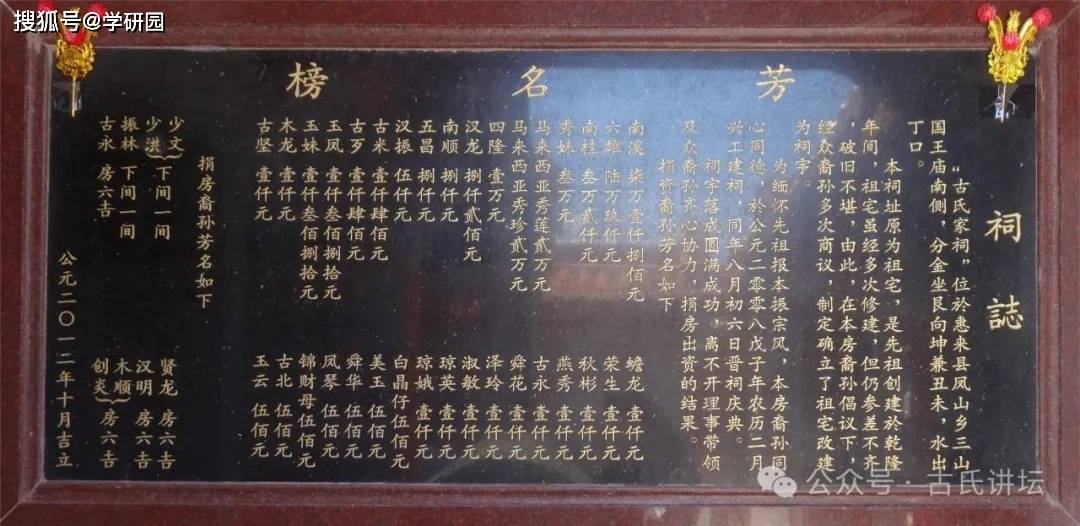 搜狐号@学研园
芳名榜
祠誌
“古氏家祠”位於惠来县凤山乡三山
国王庙南侧，分金坐艮向坤兼丑未，水出
丁口。
本祠址原为祖宅，是先祖创建於乾隆
年间，祖宅虽经多次修建，但仍参差不齐
，破旧不堪，由此，在本房裔孙倡议下，
经众裔孙多次商议，制定确立了祖宅改建
为祠宇。
为缅怀先祖报本振宗风，本房裔孙同
心同德，於公元二零零八戊子年农历二月
兴工建祠，同年八月初六日晋祠庆典。
祠宇落成圆满成功，离不开理事带领
及众裔孙齐心协力，捐房出资的结果。
捐资裔孙芳名如下
南溪 柒万壹仟捌佰元
六雄 陆万玖仟元
南桂 叁万贰仟元
秀妹 叁万元
马来西亚秀莲贰万元
马来西亚秀珍贰万元
四隆 壹万元
汉龙 捌仟贰佰元
南顺 捌仟元
五昌 捌仟元
汉振 伍仟元
古米 壹仟肆佰元
古歹 壹仟肆佰元
玉凤 壹仟叁佰捌拾元
玉妹 壹仟叁佰捌拾元
木龙 壹仟元
古坚 壹仟元
蟾龙 壹仟元
荣生 壹仟元
秋彬 壹仟元
燕秀 壹仟元
古永 壹仟元
舜花 壹仟元
泽玲 壹仟元
淑敏 壹仟元
琼英 壹仟元
琼娥 壹仟元
白晶仔伍佰元
美玉 伍佰元
舜华 伍佰元
凤琴 伍佰元
锦财母伍佰元
古北 伍佰元
玉云 伍佰元
捐房裔孙芳名如下
少文
少洪 下间一间
振林 下间一间
古永 房六吉
贤龙 房六吉
汉明 房六吉
木顺
创炎 房六吉
公元二〇一二年十月吉立
公众号·古氏讲坛